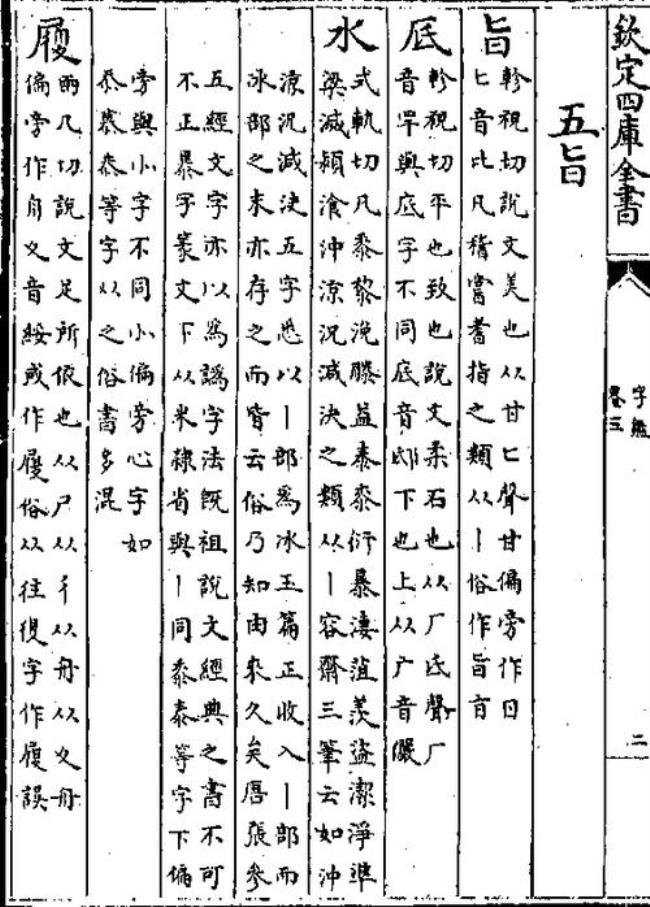 欽定四庫全書
字鑑
卷三
二
五旨
旨
軫視切説文美也从甘匕聲甘偏旁作日
匕音比凡稽嘗耆指之類从丨俗作旨
厎
軫視切平也致也説文柔石也从厂氐聲厂
音罕與底字不同底音邸下也上从广音儼
水
式軌切凡黍黎浼滕益泰桼衍暴淒沮羡盜潔淨準
梁減潁飡沖涼況減決之類从丨容齋三筆云如沖
涼況減決五字悉以丨部為冰玉篇正收入丨部而
冰部之末亦存之而皆云俗乃知由來久矣唐張參
五經文字亦以為譌字法既祖說文經典之書不可
不正暴字篆文下从米隸省與丨同黍泰等字下偏
旁與小字不同小偏旁心字如
恭慕忝等字从之俗書多混
履
兩几切説文足所依也从尸从彳从舟从夊舟
偏旁作月夊音綏或作履俗从往復字作履誤